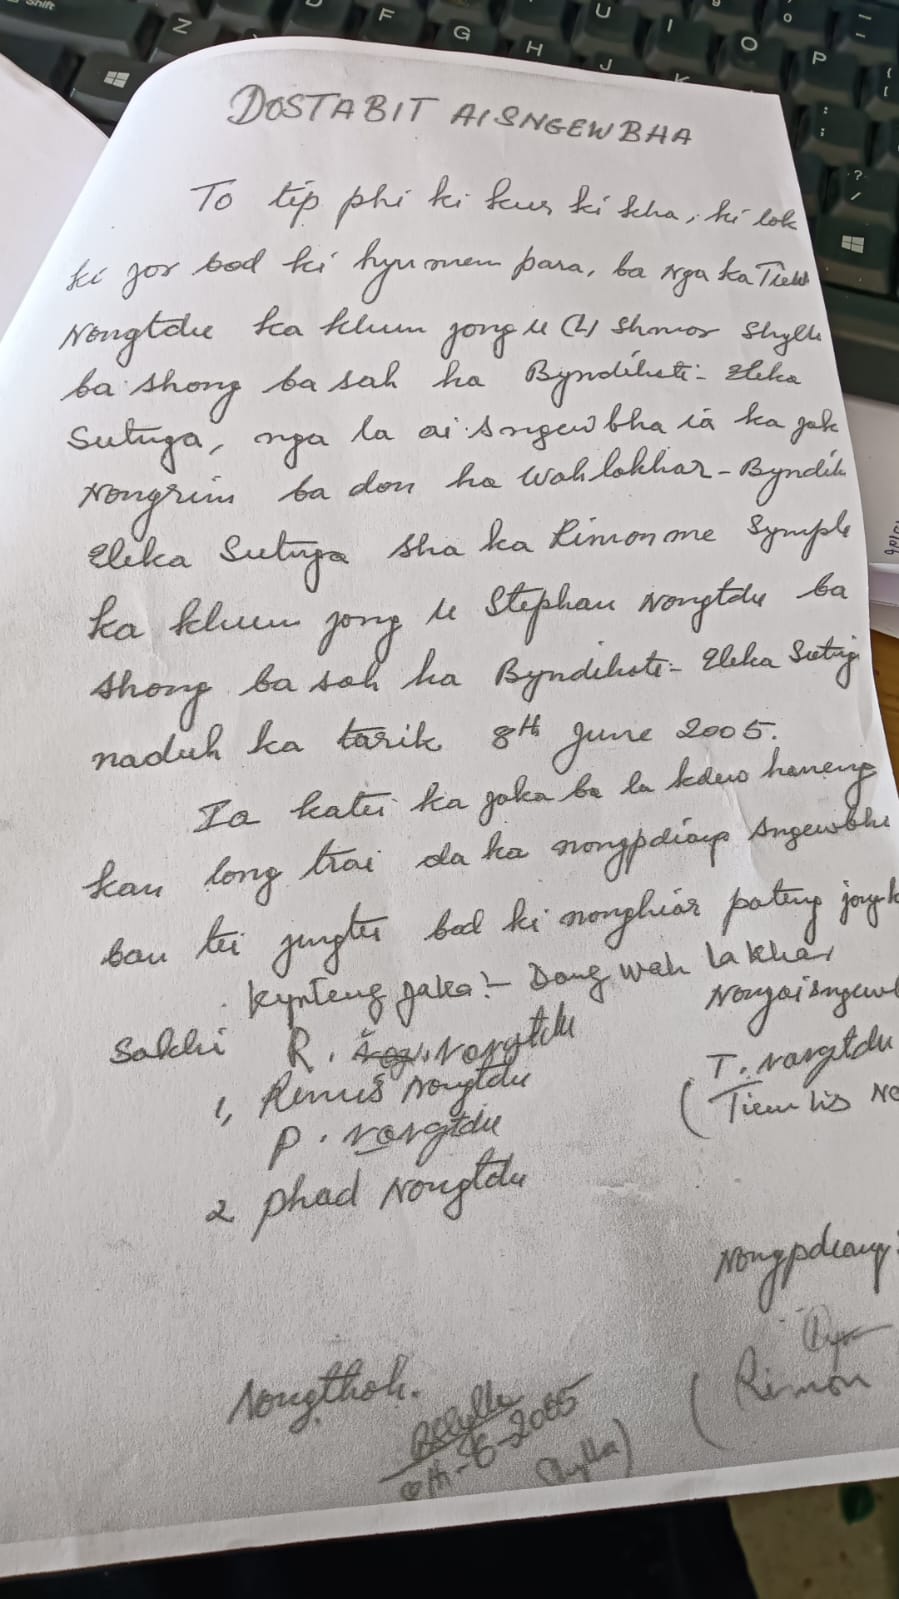 DOSTABIT AISNGEWBHA
To tip phi ki kur ki kha, ki lok
ki jor bad ki hynmen para, ba nga ka Tiew
Nongtdu ka khun jong u (L) Shmor Shylla
ba shong ba sah ha Byndihati - Eleka
Sutnga, nga la ai sngewbha ia ka jak
Nongrim ba don ha Wah lakhar - Byndih
Eleka Sutnga sha ka Rimonme Symple
ka khun jong u Stephan Nongtdu ba
shong ba sah ha Byndihati - Eleka Sutng
naduh ka tarik 8th June 2005.
Ia katei ka jaka ba la kdew haneng
kan long trai da ka nongpdiang sngewbha
ban tei jungtei bad ki nonghiar pateng jong k
Kynteng jaka :- Dong Wah Lakhar
Nongaisngewb
Sakhi R. Nongtdu
T. Nongtdu
1, Remus Nongtdu
(Tiewlis No
P. Nongtdu
2 Phad Nongtdu
Nongpdiang :
Nongthoh.
(Rimon
8th-6-2005
Shylla)